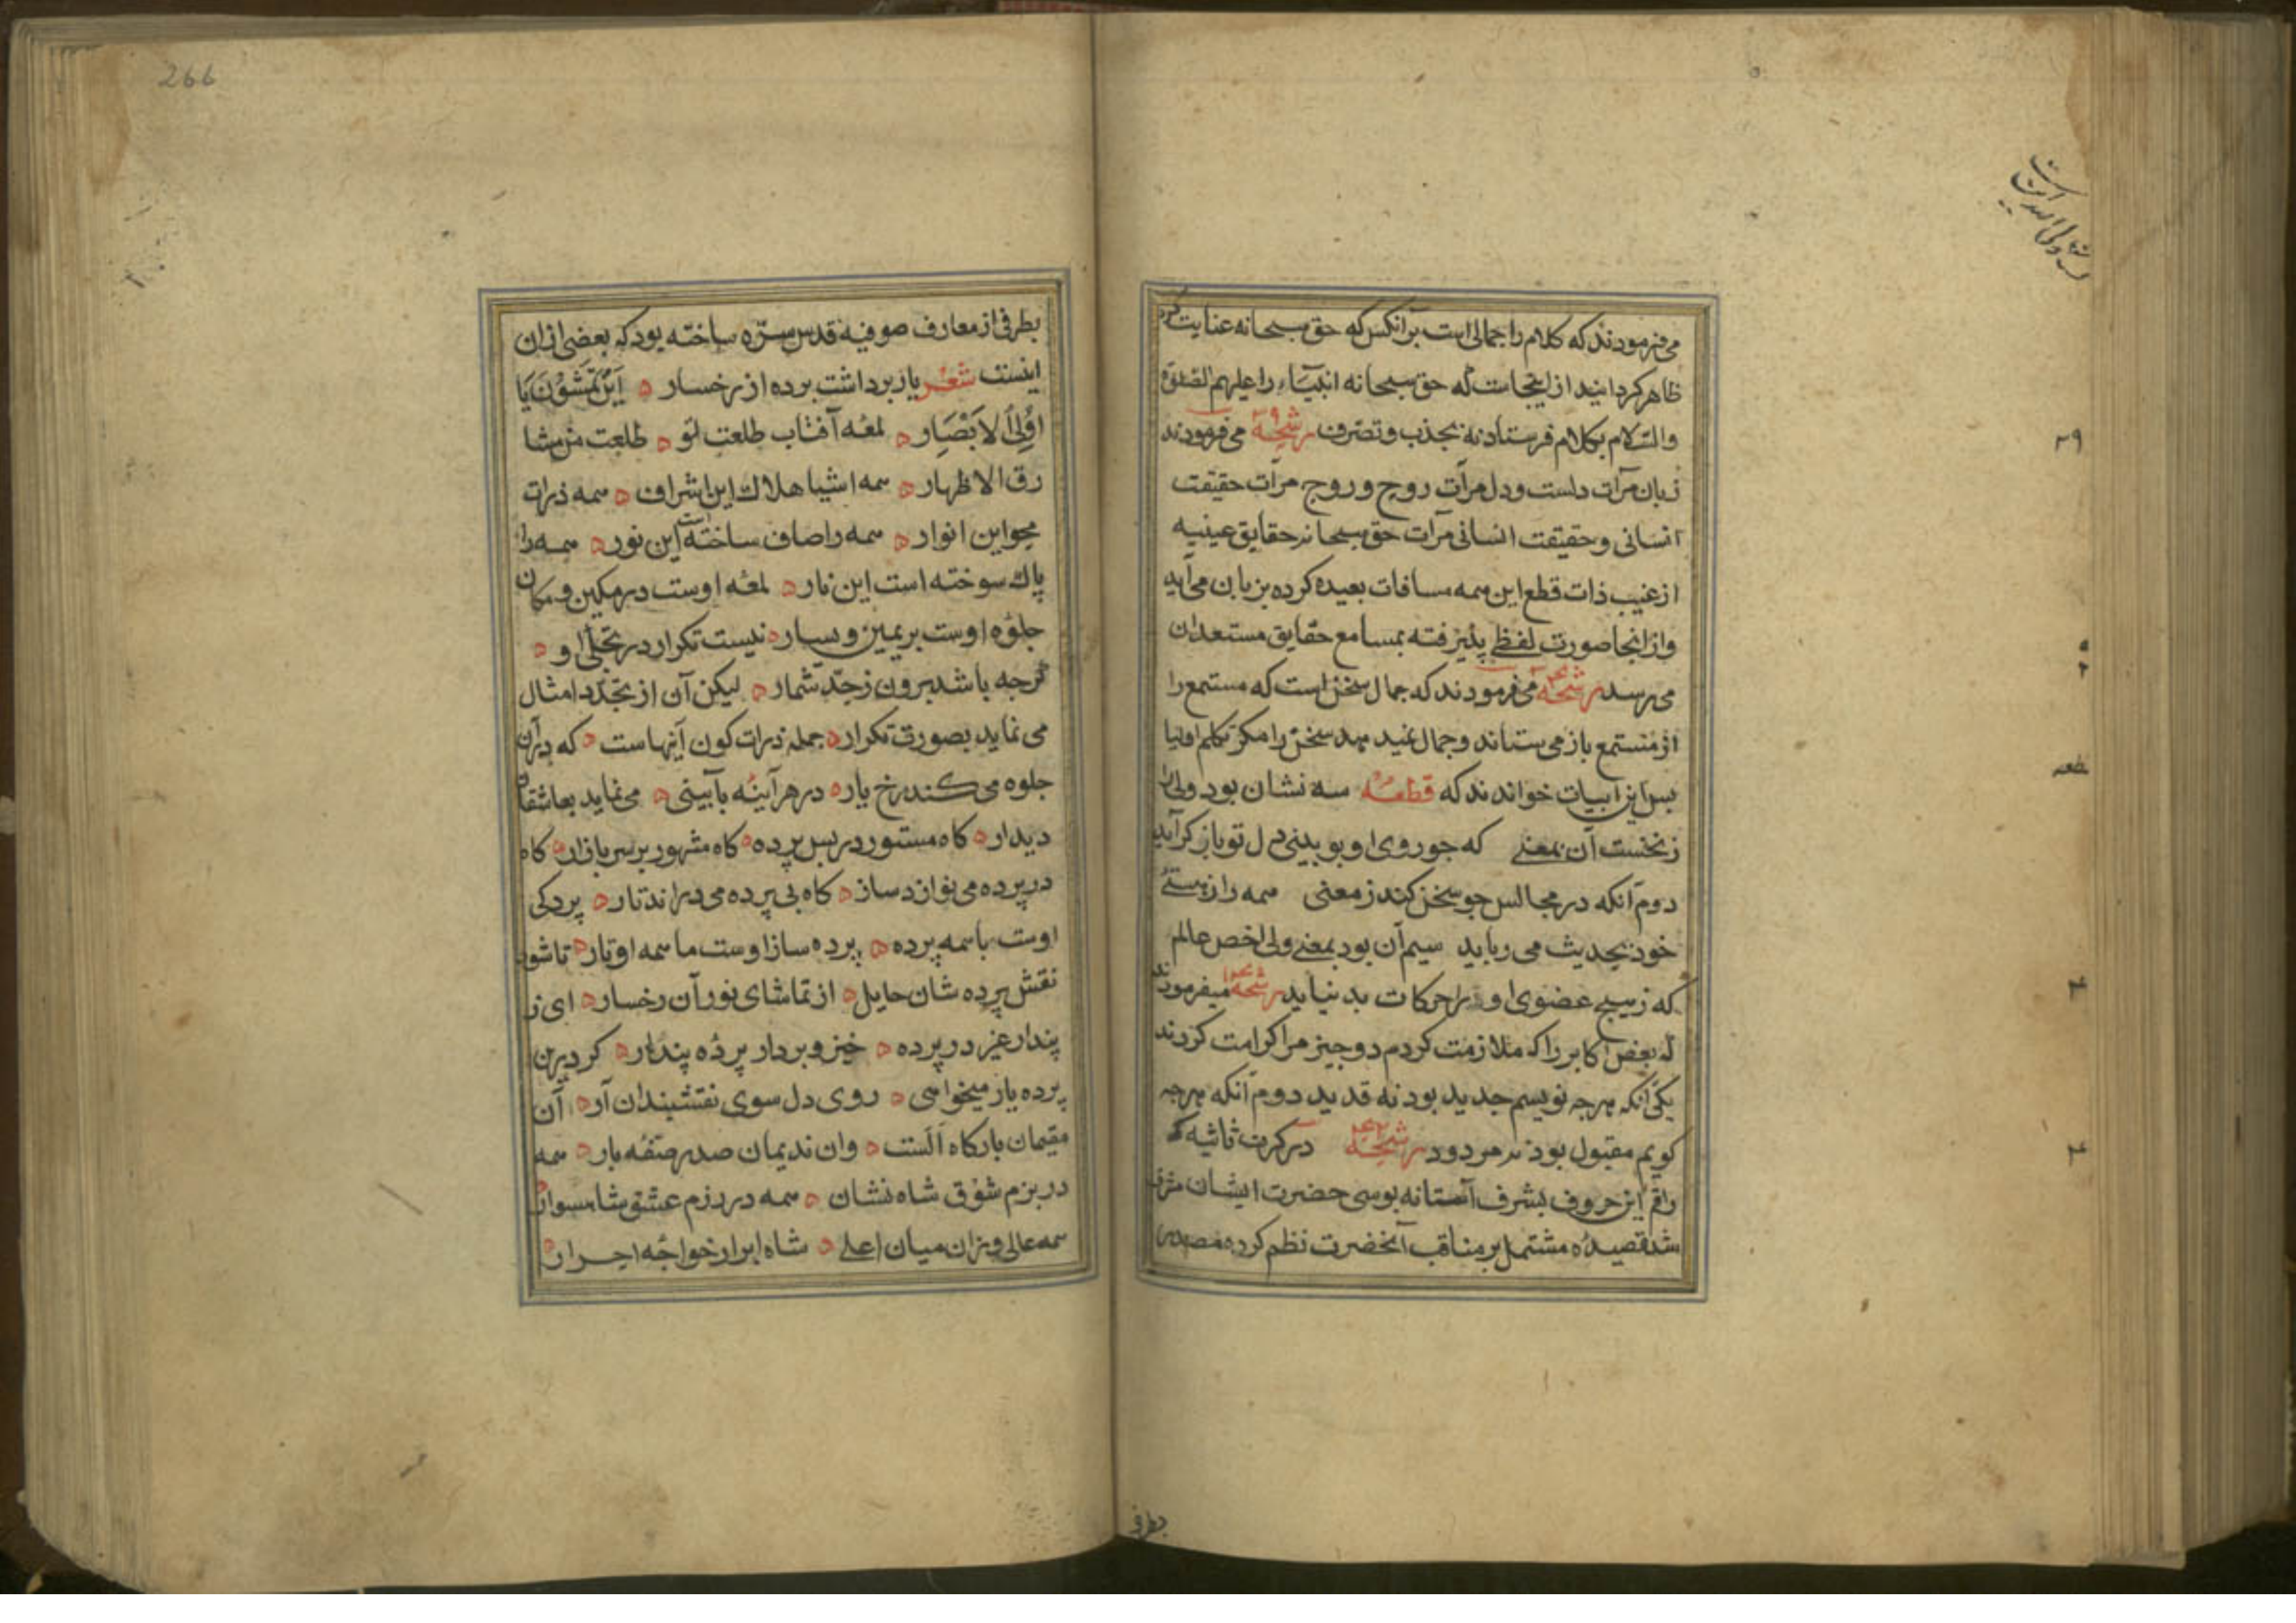 می‌فرمودند که کلام را جمالی است بر آنکس که حق سبحانه عنایت کرد
ظاهر کردانید از اینجاست که حق سبحانه انبیاء را علیهم الصلوة
والسلام بکلام فرستاد نه بجذب و تصرف رشحه می‌فرمودند
زبان مرآت دلست و دل مرآت روح و روح مرآت حقیقت
انسانی و حقیقت انسانی مرآت حق سبحانه حقایق عینیه
از غیب ذات قطع این همه مسافات بعیده کرده بزبان می‌آید
و از انجا صورت لفظی پذیرفته بمسامع حقایق مستعدان
می‌رسد رشحه می‌فرمودند که جمال سخن است که مستمع را
از مستمع باز می‌ستاند و جمال نمی‌دهد سخن را مکر تکلم اولیا
بس این ابیات خواندند که قطعه سه نشان بود ولی را
زنخست آن بمعنی که جو روی او ببینی دل تو باز کراید
دوم آنکه در مجالس جو سخن کند ز معنی همه را ز هستی
خود بحدیث می رباید سیم آن بود بمعنی ولی اخص عالم
که ز هیج عضوی او را حرکات بد نیاید رشحه میفرمودند
که بعض اکابر را که ملازمت کردم دو جیز مرا کرامت کردند
یکی آنکه هرجه نویسم جدید بود نه قدید دوم آنکه هرجه
کویم مقبول بود نه مردود رشحه در کرت ثانیه که
راقم این حروف بشرف آستانه بوسی حضرت ایشان مشرف
شد قصیدهٔ مشتمل بر مناقب آنحضرت نظم کرده مصدر
بطرفی
۲۹
266
بطرفی از معارف صوفیه قدس سره ساخته بود که بعضی ازان
اینست شعر یار برداشت برده از رخسار ه این تمشون یا
اولی الابصار ه لمعه آفتاب طلعت تو ه طلعت من مشا
رق الاظهار ه همه اشیا هلاک این اشراف ه همه ذرات
محو این انوار ه همه را صاف ساخته است این نور ه همه را
پاک سوخته است این نار ه لمعه اوست در مکین و مکان
جلوه اوست بر یمین و یسار ه نیست تکرار در تجلی او ه
کرجه باشد برون ز حد شمار ه لیکن آن از تجدد امثال
می نماید بصورت تکرار ه جمله ذرات کون آینهاست ه که دران
جلوه می کند رخ یار ه در هر آینه بآیینی ه می نماید بعاشقان
دیدار ه کاه مستور در بس پرده ه کاه مشهور بر سر بازار ه کاه
در پرده می نوازد ساز ه کاه بی پرده می دراند تار ه پردکی
اوست با همه پرده ه پرده ساز اوست ما همه اوتار ه تا شود
نقش پرده شان حایل ه از تماشای نور آن رخسار ه ای ز
پندار غیر در پرده ه خیز و بردار پرده پندار ه کر درین
پرده یار میخواهی ه روی دل سوی نقشبندان آر ه آن
مقیمان بارکاه الست ه وان ندیمان صدر صفه بار ه همه
در بزم شوق شاه نشان ه همه در رزم عشق شاهسوار ه
همه عالی و زان میان اعلی ه شاه ابرار خواجه احرار ه